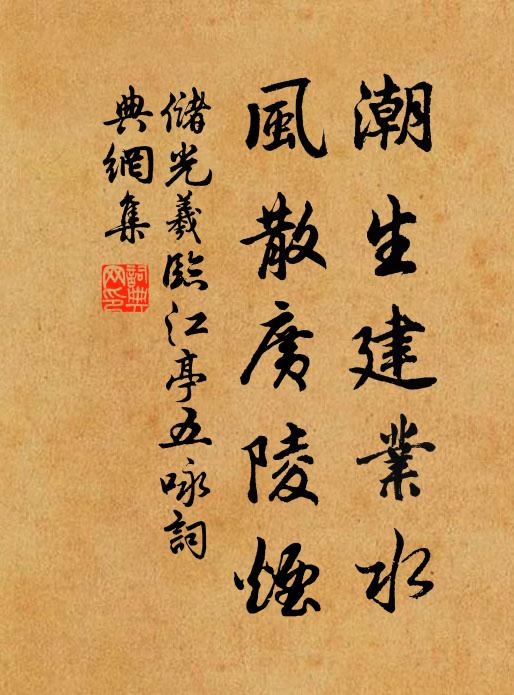 潮生建業水
風散廣陵煙
儲光羲臨江亭五咏詞
典網集
詞典網印